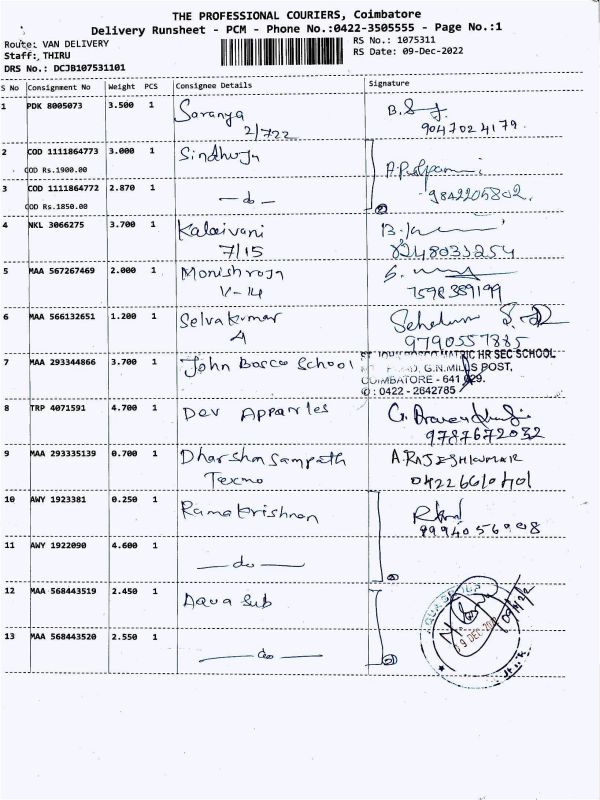 THE PROFESSIONAL COURIERS, Coimbatore
Delivery Runsheet - PCM - Phone No.:0422-3505555 - Page No.:1
Route: VAN DELIVERY
RS No.: 1075311
Staff: THIRU
RS Date: 09-Dec-2022
DRS No.: DCJB107531101
S No Consignment No Weight PCS Consignee Details Signature
1 PDK 8005073 3.500 1 Saranya
2/722 9047024179.
2 COD 1111864773 3.000 1 Sindhuja
COD Rs.1900.00
3 COD 1111864772 2.870 1 — do —
9842205802.
COD Rs.1850.00
4 NKL 3066275 3.700 1 Kalaivani
7/15 8248033254
5 MAA 567267469 2.000 1 Monishroja
V-14 7598389199
6 MAA 566132651 1.200 1 Selvakumar
A 9790557885
7 MAA 293344866 3.700 1 John Bosco School
MATRIC HR SEC SCHOOL
G.N.MILLS POST,
COIMBATORE - 641 029.
: 0422 - 2642785
8 TRP 4071591 4.700 1 Dev Apparrles
9787672032
9 MAA 293335139 0.700 1 Dharshan Sampath A.RAJESHKUMAR
Texmo 04226610401
10 AWY 1923381 0.250 1 Ramakrishnan
11 AWY 1922090 4.600 1 — do —
12 MAA 568443519 2.450 1 Aqua Sub
09 DEC
13 MAA 568443520 2.550 1 — do —